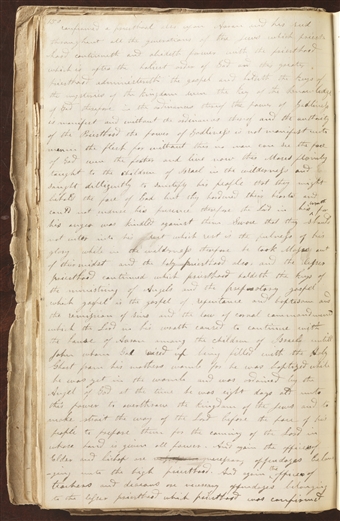 confirmed a priesthood also upon Aaron and his seed
throughout all the generations of the Jews which priest
hood continueth and abideth forever with the priesthood
which is after the holiest order of God and the greater
priesthood administereth the gospel and holdeth the keys of
the mysteries of the kingdom even the key of the knowledge
of God therefore in the ordinances thereof the power of Godliness
is manifest and without the ordinances thereof and the authority
of the Priesthood the power of Godliness is not manifest unto
men in the flesh for without this no man can see the face
of God even the father and live now this Moses plainly
taught to the children of Israel in the wilderness and
saught dilligently to sanctify his people that they might
behold the face of God but they hardened their hearts and
could not endure his presence therefore the Lord in his wrath for
his anger was kindled against them swore that they should
not enter into his rest which rest is the fulness of his
glory while in the wilderness therefore he took Moses out
of their midst and the holy priesthood also and the lesser
priesthood continued which priesthood holdeth the keys of
the ministering of Angels and the preparatory gospel
which gospel is the gospel of repentance and baptism and
the remission of sins and the law of carnal commandments
which the Lord in his wrath caused to continue with
the house of Aaron among the children of Israel until
John whom God raised up being filled with the Holy
Ghost from his mothers womb for he was baptized while
he was yet in the womb and was ordained by the
Angel of God at the time he was eight days old unto
this power to overthrow the kingdom of the Jews and to
make strait the way of the Lord before the face of his
people to prepare them for the coming of the Lord in
whose hand is given all power. And again the offices of
Elder and bishop are necessary appendages belon
ging unto the high priesthood. And again the offices of
teachers and deacons are necessary appendages belonging
to the lesser priesthood which priesthood was confirmed